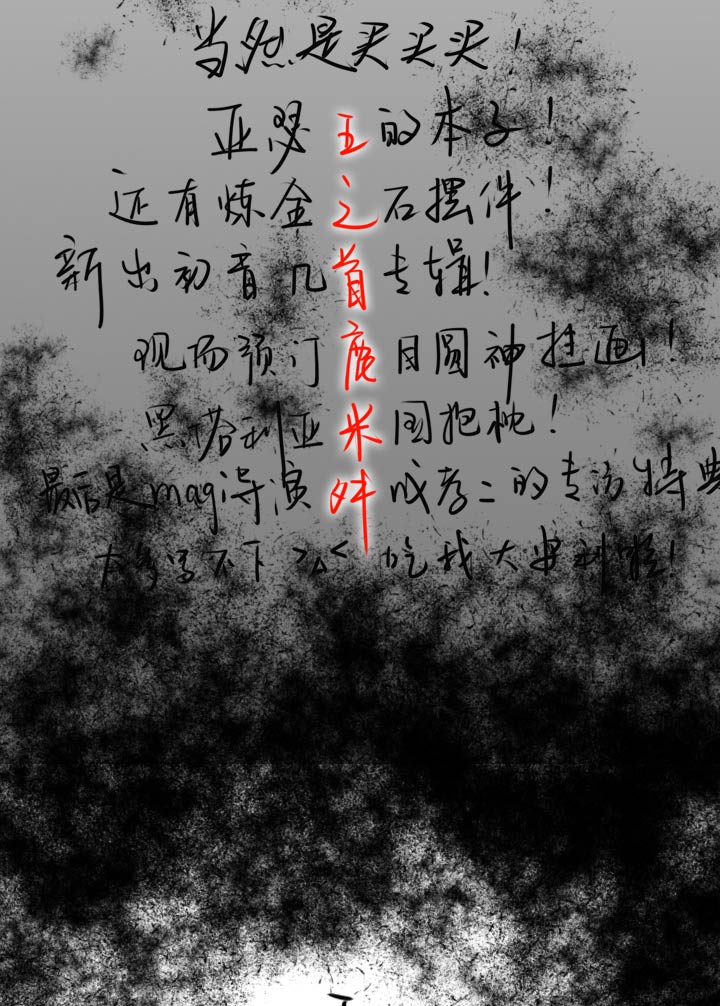 当然是买买买！
亚瑟王的本子！
还有炼金之石摆件！
新出初音几首专辑！
现场预订鹿目圆神挂画！
黑塔利亚米国抱枕！
最后是mag导演 成孝二的专访特典
太多写不下 >A< 吃我大安利啦！